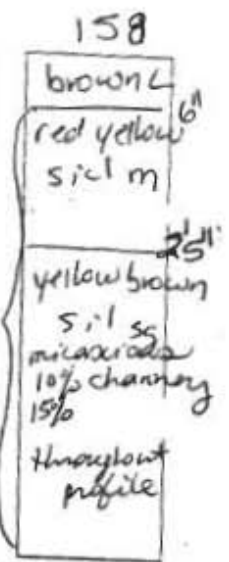 158
brown L
6"
red yellow
sicl m
25"
yellow brown
sil sg
micaceous
10% channery
15%
throughout
profile